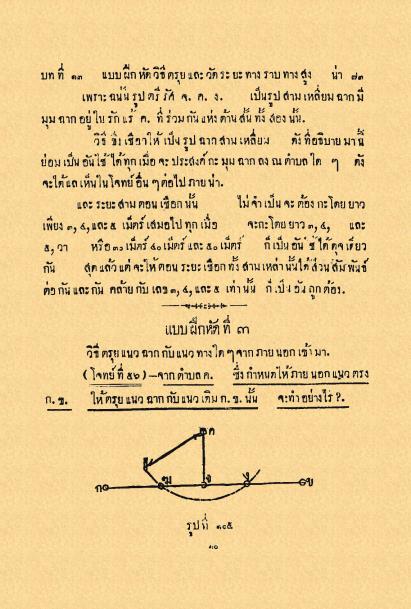 บทที่ ๑๓ แบบฝึกหัดวิธีตรุยและวัดระยะทางราบทางสูง น่า ๗๓
เพราะฉนั้นรูปตรีรัศ จ. ค. ง. เปนรูปสามเหลี่ยมฉากมี
มุมฉากอยู่ในรักแร้ ค. ที่ร่วมกันแห่งด้านสั้นทั้งสองนั้น.
วิธีขึงเชือกให้เปนรูปฉากสามเหลี่ยม ดังที่อธิบายมานี้
ย่อมเปนอันใช้ได้ทุกเมื่อจะประสงค์กะมุมฉากลงณตำบลใด ๆ ดัง
จะได้แลเห็นในโจทย์อื่น ๆ ต่อไปภายน่า.
และระยะสามตอนเชือกนั้น ไม่จำเปนจะต้องกะโดยยาว
เพียง ๓, ๔, และ ๕ เม็ตร์เสมอไปทุกเมื่อ จะกะโดยยาว ๓, ๔, และ
๕, วา หรือ ๓๐ เม็ตร์ ๔๐ เม็ตร์ และ ๕๐ เม็ตร์ ก็เปนอันใช้ได้ดุจเดียว
กัน สุดแล้วแต่จะให้ตอนระยะเชือกทั้งสามเหล่านั้นได้ส่วนสัมพันธ์
ต่อกันและกัน คล้ายกับเลข ๓, ๔, และ ๕ เท่านั้น ก็เปนอันถูกต้อง.
แบบฝึกหัดที่ ๓
วิธีตรุยแนวฉากกับแนวทางใด ๆ จากภายนอกเข้ามา.
(โจทย์ที่ ๕๖)—จากตำบล ค. ซึ่งกำหนดให้ภายนอกแนวตรง
ก. ข. ให้ตรุยแนวฉากกับแนวเดิม ก. ข. นั้น จะทำอย่างไร ?.
ค
ก
ฆ
จ
ง
ข
รูปที่ ๑๐๕
๑๐